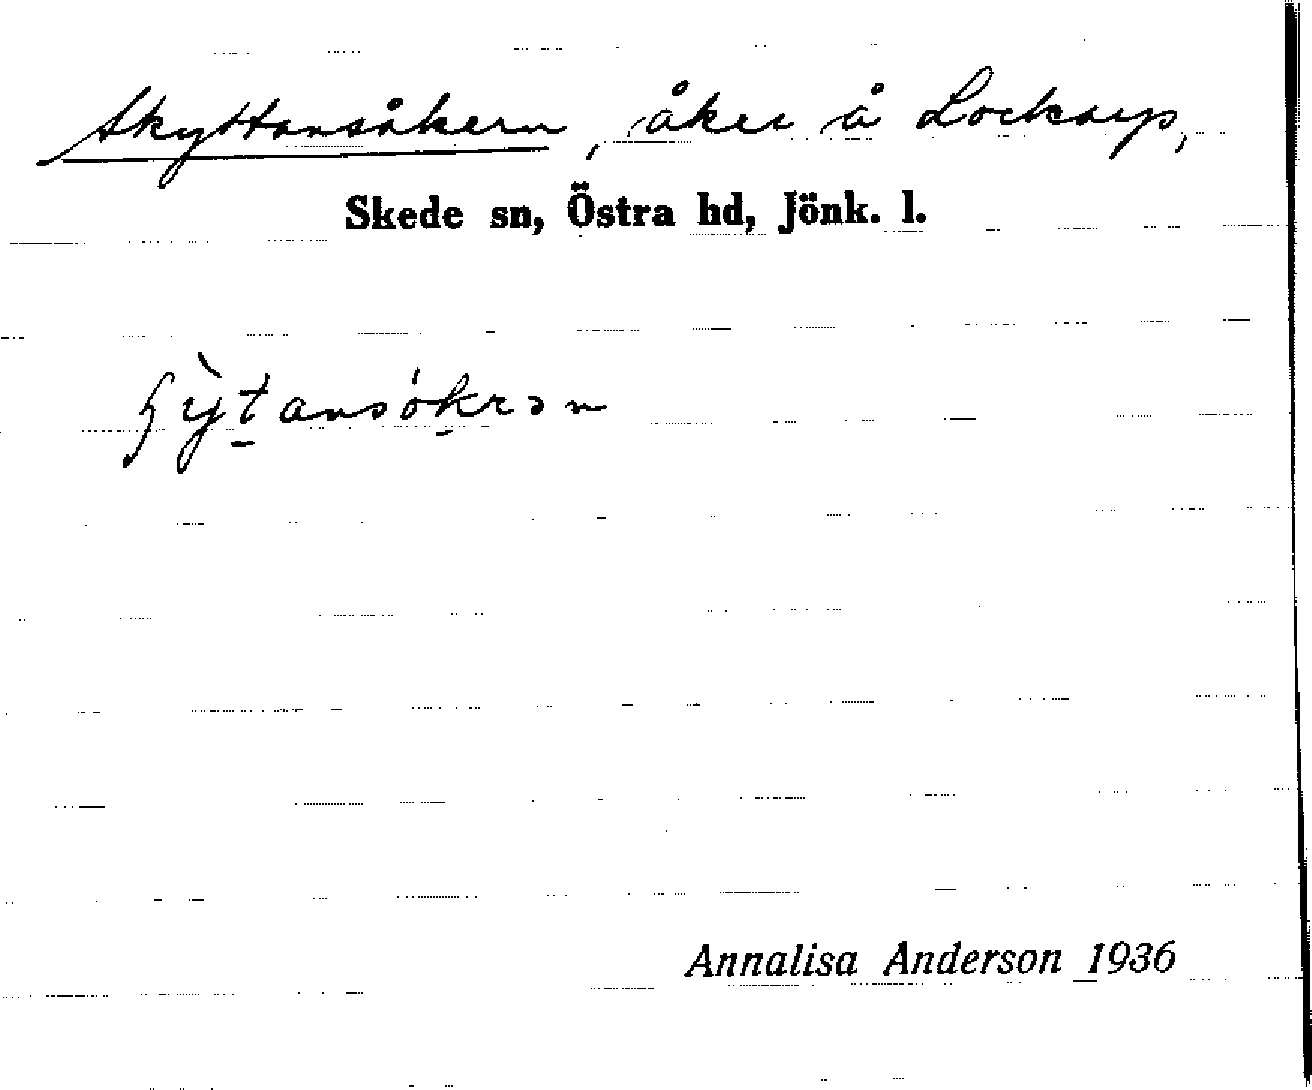 Skyttansåkern, åker å Lockarp,
Skede sn, Östra hd, Jönk. l.
Annalisa Anderson 1936